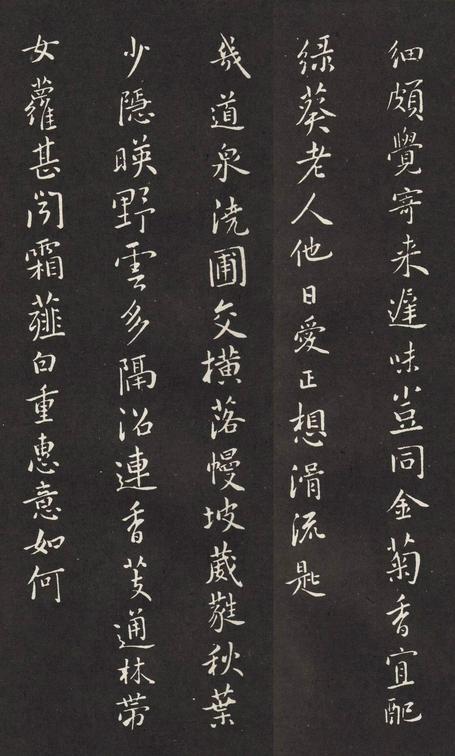 細頗覺寄来遲味豈同金菊香宜配
綠葵老人他日愛正想滑流匙
幾道泉澆圃交橫落慢坡葳蕤秋葉
少隱暎野雲多隔沼連香芰通林帶
女蘿甚聞霜薤白重惠意如何